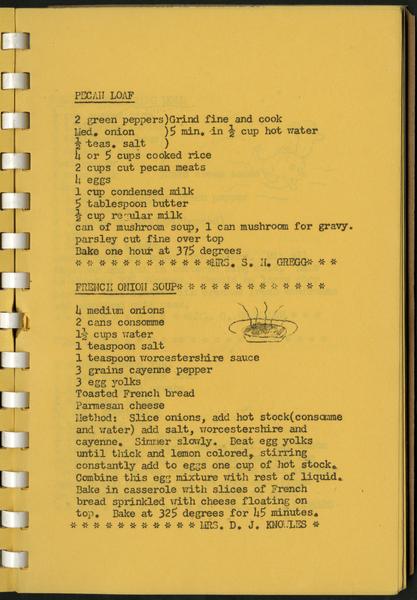 PECAN LOAF
2 green peppers)Grind fine and cook
Med. onion )5 min. in ½ cup hot water
½ teas. salt )
4 or 5 cups cooked rice
2 cups cut pecan meats
4 eggs
1 cup condensed milk
5 tablespoon butter
½ cup regular milk
can of mushroom soup, 1 can mushroom for gravy.
parsley cut fine over top
Bake one hour at 375 degrees
* * * * * * * * * * * *MRS. S. H. GREGG* * *
FRENCH ONION SOUP* * * * * * * * * * * * *
4 medium onions
2 cans consomme
1½ cups water
1 teaspoon salt
1 teaspoon worcestershire sauce
3 grains cayenne pepper
3 egg yolks
Toasted French bread
Parmesan cheese
Method: Slice onions, add hot stock(consomme
and water) add salt, worcestershire and
cayenne. Simmer slowly. Beat egg yolks
until thick and lemon colored, stirring
constantly add to eggs one cup of hot stock.
Combine this egg mixture with rest of liquid.
Bake in casserole with slices of French
bread sprinkled with cheese floating on
top. Bake at 325 degrees for 45 minutes.
* * * * * * * * * * * MRS. D. J. KNOWLES *